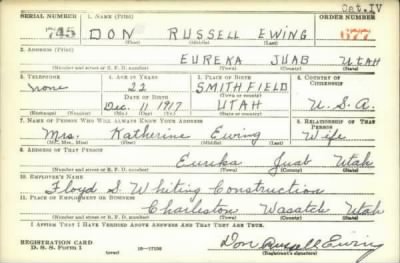 Cat. IV
SERIAL NUMBER 1. NAME (Print) ORDER NUMBER
745 DON RUSSELL EWING 677
(First) (Middle) (Last)
2. ADDRESS (Print)
EUREKA JUAB UTAH
(Number and street or R. F. D. number) (Town) (County) (State)
3. TELEPHONE 4. AGE IN YEARS 5. PLACE OF BIRTH 6. COUNTRY OF CITIZENSHIP
none 22 SMITHFIELD
DATE OF BIRTH (Town or county)
Dec. 11 1917 UTAH U.S.A.
(Exchange) (Number) (Mo.) (Day) (Yr.) (State or country)
7. NAME OF PERSON WHO WILL ALWAYS KNOW YOUR ADDRESS 8. RELATIONSHIP OF THAT PERSON
Mrs. Katherine Ewing Wife
(Mr., Mrs., Miss) (First) (Middle) (Last)
9. ADDRESS OF THAT PERSON
Eureka Juab Utah
(Number and street or R. F. D. number) (Town) (County) (State)
10. EMPLOYER'S NAME
Floyd S. Whiting Construction
11. PLACE OF EMPLOYMENT OR BUSINESS
Charleston Wasatch Utah
(Number and street or R. F. D. number) (Town) (County) (State)
I AFFIRM THAT I HAVE VERIFIED ABOVE ANSWERS AND THAT THEY ARE TRUE.
REGISTRATION CARD
D. S. S. Form 1 (over) 16—17105 Don Russell Ewing
(Registrant's signature)